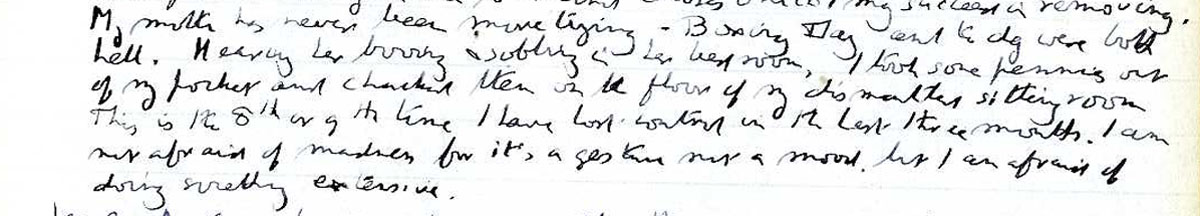 my success in removing.
My mother has never been more trying - Boxing Day and the dg were both
hell. Hearing her booing & sobbing in her bedroom, I took some pennies out
of my pocket and chucked them on the floor of my dismantled sitting room
This is the 8th or 9th time I have lost control in the last three months. I am
not afraid of madness for it's a gesture not a mood, but I am afraid of
doing something extensive.